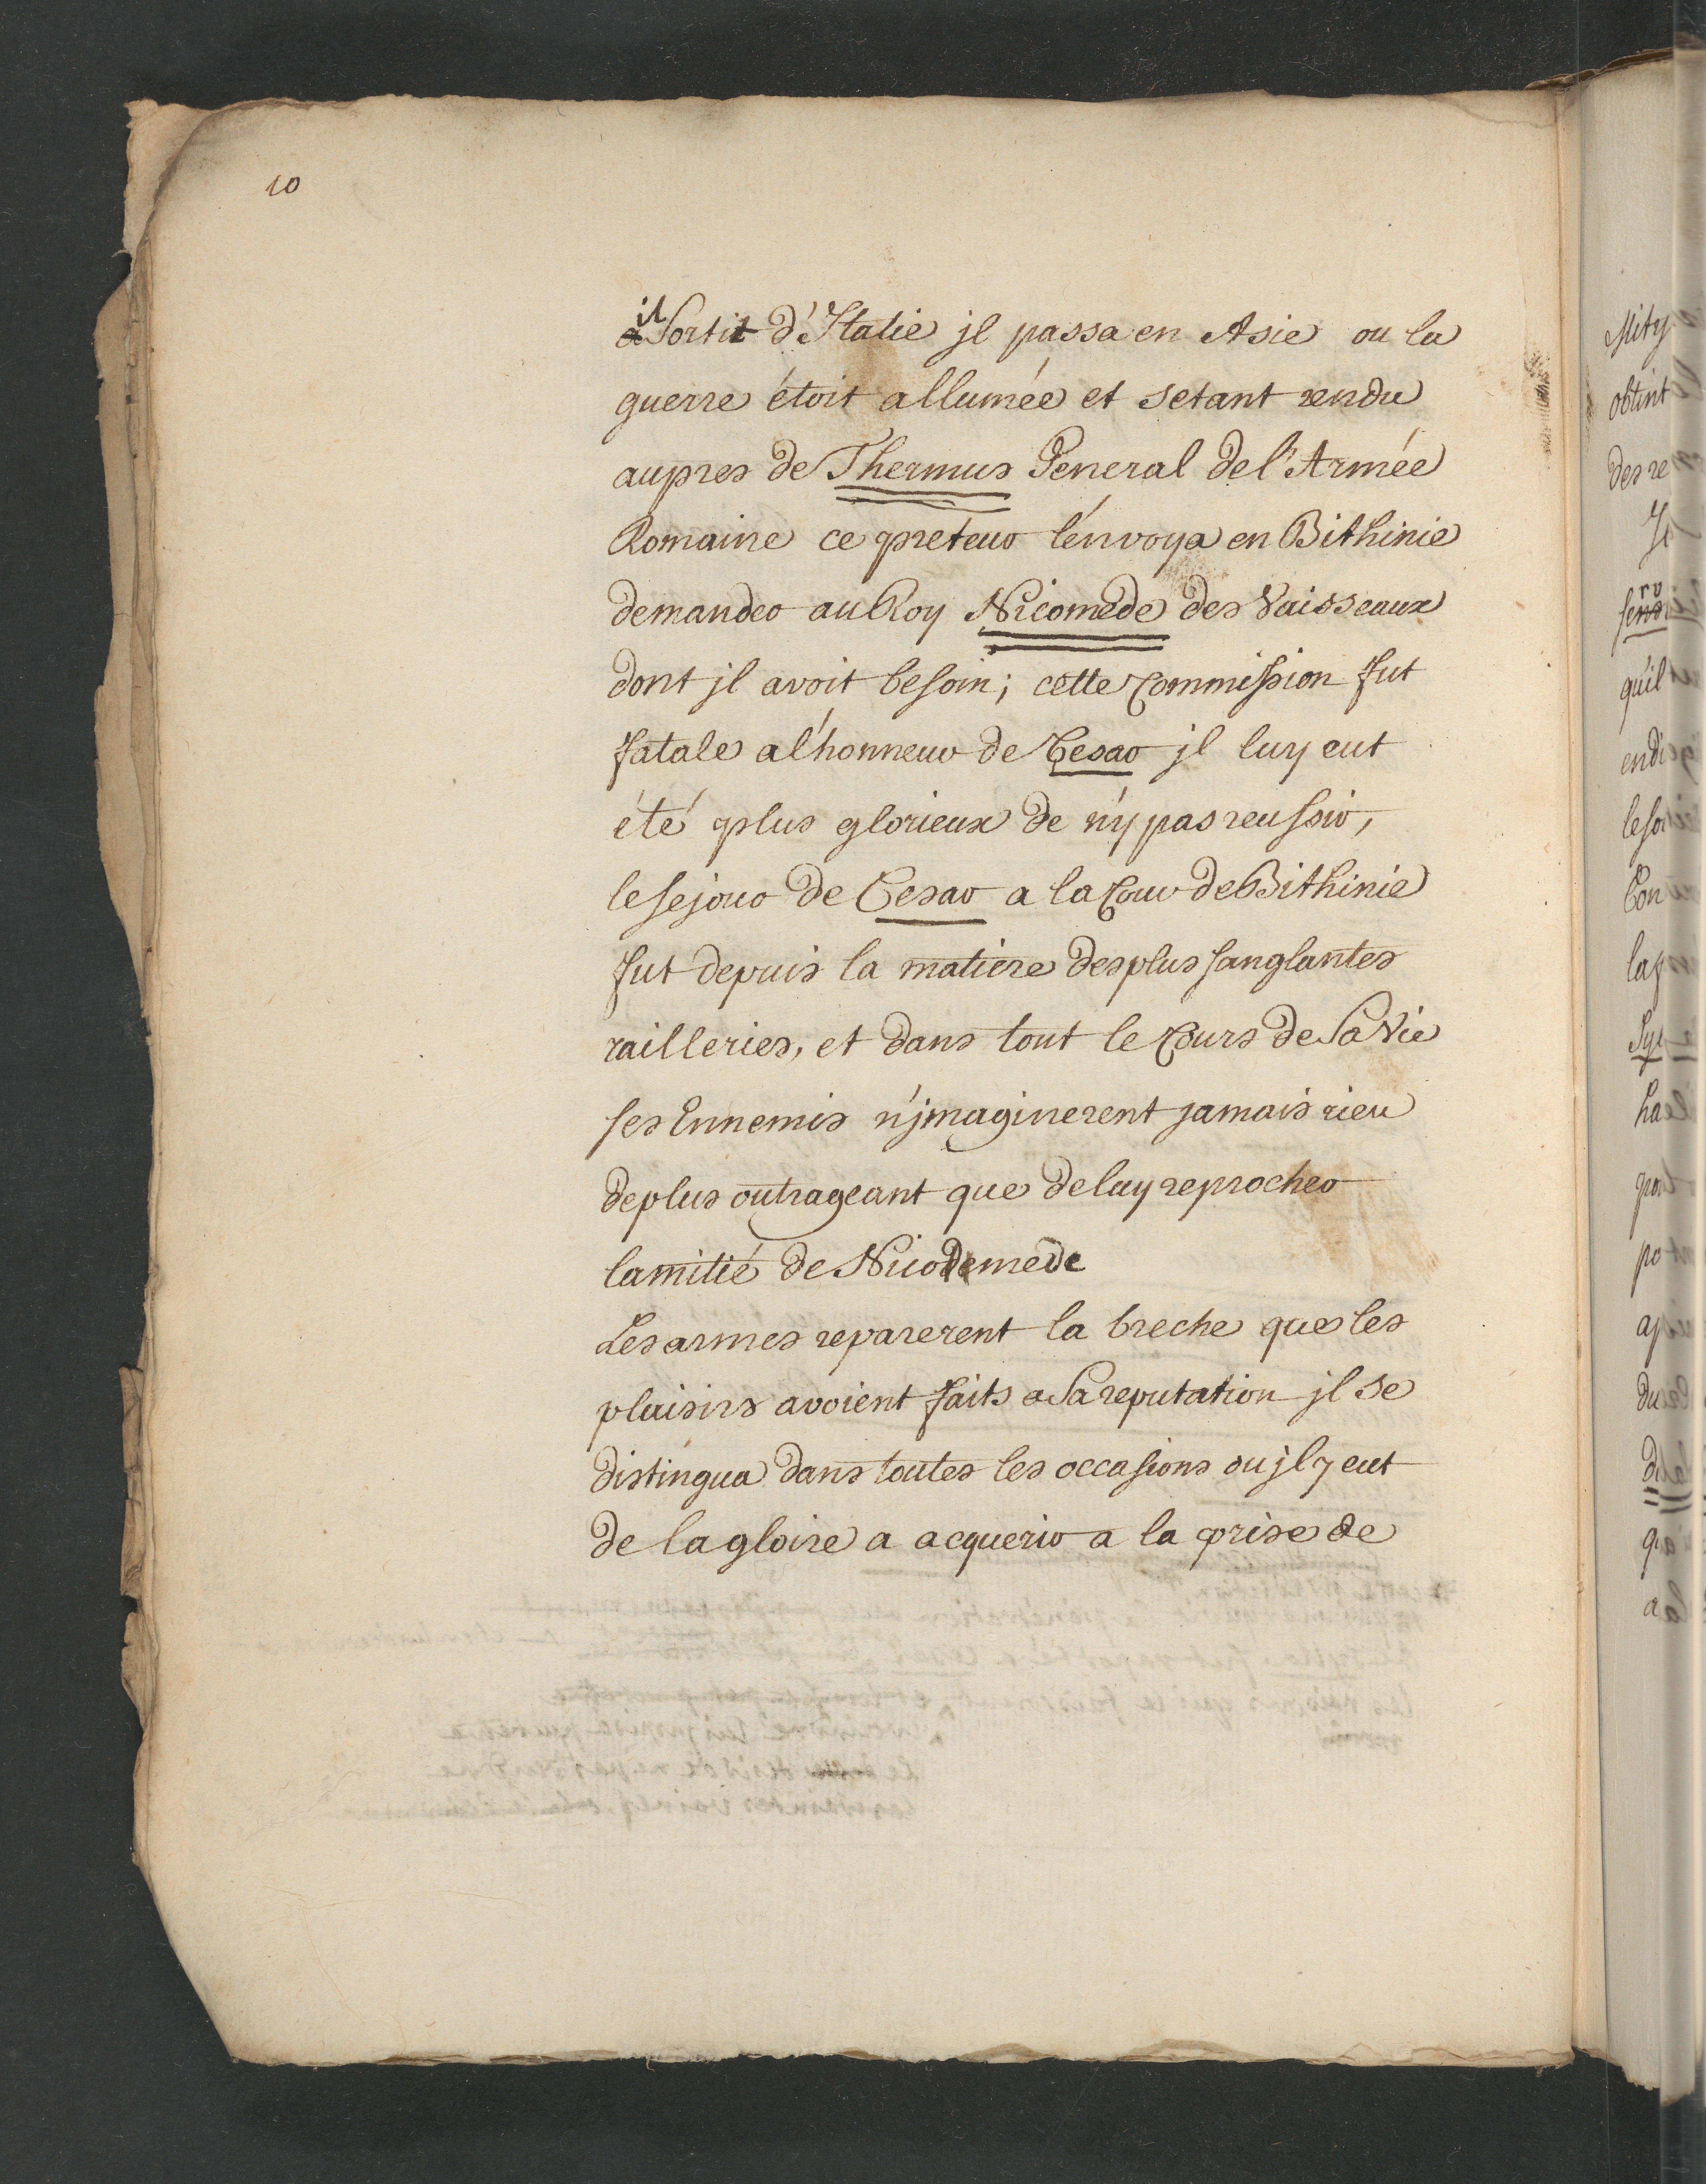 10
il Sortit d'Italie jl passa en Asie ou la
guerre étoit allumée et setant rendu
aupres de Thermus General de l'Armée
Romaine ce preteur l'envoya en Bithinie
demander au Roy Nicomede des Vaisseaux
dont jl avoit besoin; cette Commission fut
fatale a l'honneur de Cesar jl luy eut
été plus glorieux de n'y pas reussir,
le sejour de Cesar a la Cour de Bithinie
fut depuis la matiere des plus sanglantes
railleries, et dans tout le Cours de Sa Vie
ses Ennemis n'jmaginerent jamais rien
de plus outrageant que de luy reprocher
lamitié de Nicomede
Les armes reparerent la breche que les
plaisirs avoient faits a Sa reputation jl se
distingua dans toutes les occasions ou jl y eut
de la gloire a acquerir a la prise de
Mity
obtint
des re
qu'il